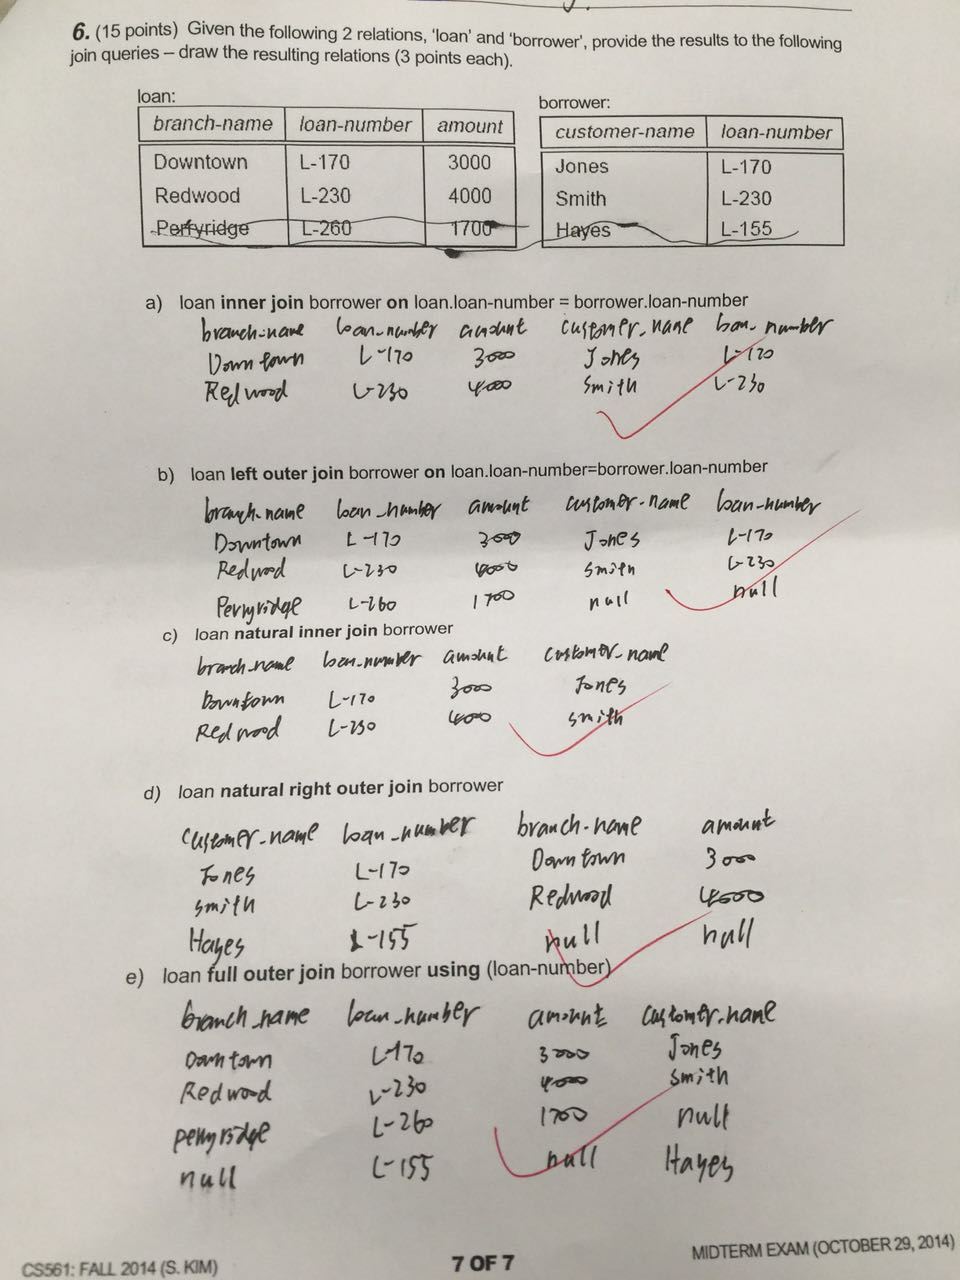 6. (15 points) Given the following 2 relations, 'loan' and 'borrower', provide the results to the following
join queries – draw the resulting relations (3 points each).
loan:
branch-name loan-number amount
Downtown L-170 3000
Redwood L-230 4000
Perryridge L-260 1700
borrower:
customer-name loan-number
Jones L-170
Smith L-230
Hayes L-155
a) loan inner join borrower on loan.loan-number = borrower.loan-number
branch-name loan-number amount customer-name loan-number
Downtown L-170 3000 Jones L-170
Redwood L-230 4000 Smith L-230
b) loan left outer join borrower on loan.loan-number=borrower.loan-number
branch-name loan-number amount customer-name loan-number
Downtown L-170 3000 Jones L-170
Redwood L-230 4000 Smith L-230
Perryridge L-260 1700 null null
c) loan natural inner join borrower
branch-name loan-number amount customer-name
Downtown L-170 3000 Jones
Redwood L-230 4000 Smith
d) loan natural right outer join borrower
customer-name loan-number branch-name amount
Jones L-170 Downtown 3000
Smith L-230 Redwood 4000
Hayes L-155 null null
e) loan full outer join borrower using (loan-number)
branch_name loan-number amount customer-name
Downtown L-170 3000 Jones
Redwood L-230 4000 Smith
Perryridge L-260 1700 null
null L-155 null Hayes
CS561: FALL 2014 (S. KIM) 7 OF 7 MIDTERM EXAM (OCTOBER 29, 2014)